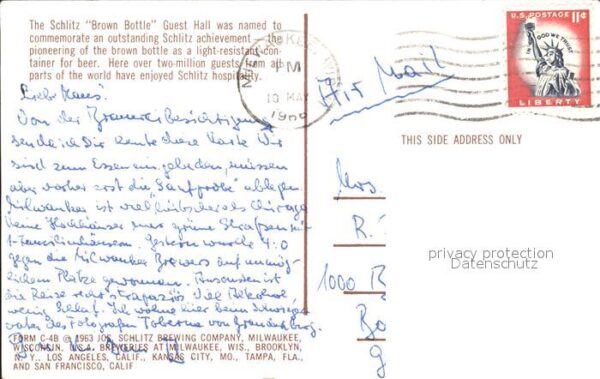 The Schlitz "Brown Bottle" Guest Hall was named to
commemorate an outstanding Schlitz achievement - the
pioneering of the brown bottle as a light-resistant con-
tainer for beer. Here over two-million guests from all
parts of the world have enjoyed Schlitz hospitality.
Von der Brauereibesichtigung
sende ich Dir heute diese Karte Wir
sind zum Essen eingeladen, müssen
aber vorher erst die "Saufprobe" ablegen.
Milwaukee ist viel hübscher als Chicago
keine Hochhäuser nur grüne Straßen mit
1-Familienhäusern. Gestern wurde 4:0
gegen die Milwaukee Brewers auf unmög-
lichem Platze gewonnen. Ansonsten ist
die Reise recht Viel Alkohol,
wenig Schlaf. Ich wohne hier beim Schwieger-
vater des Fotografen von
FORM C-4B @ 1963 JOS. SCHLITZ BREWING COMPANY, MILWAUKEE,
WISCONSIN, U.S.A. BREWERIES AT MILWAUKEE, WIS., BROOKLYN,
N. Y., LOS ANGELES, CALIF., KANSAS CITY, MO., TAMPA, FLA.,
AND SAN FRANCISCO, CALIF
PM
10 MAY
Air Mail
U.S. POSTAGE 11¢
IN GOD WE TRUST
LIBERTY
THIS SIDE ADDRESS ONLY
Mrs.
R.
1000 B
Bo
privacy protection
Datenschutz